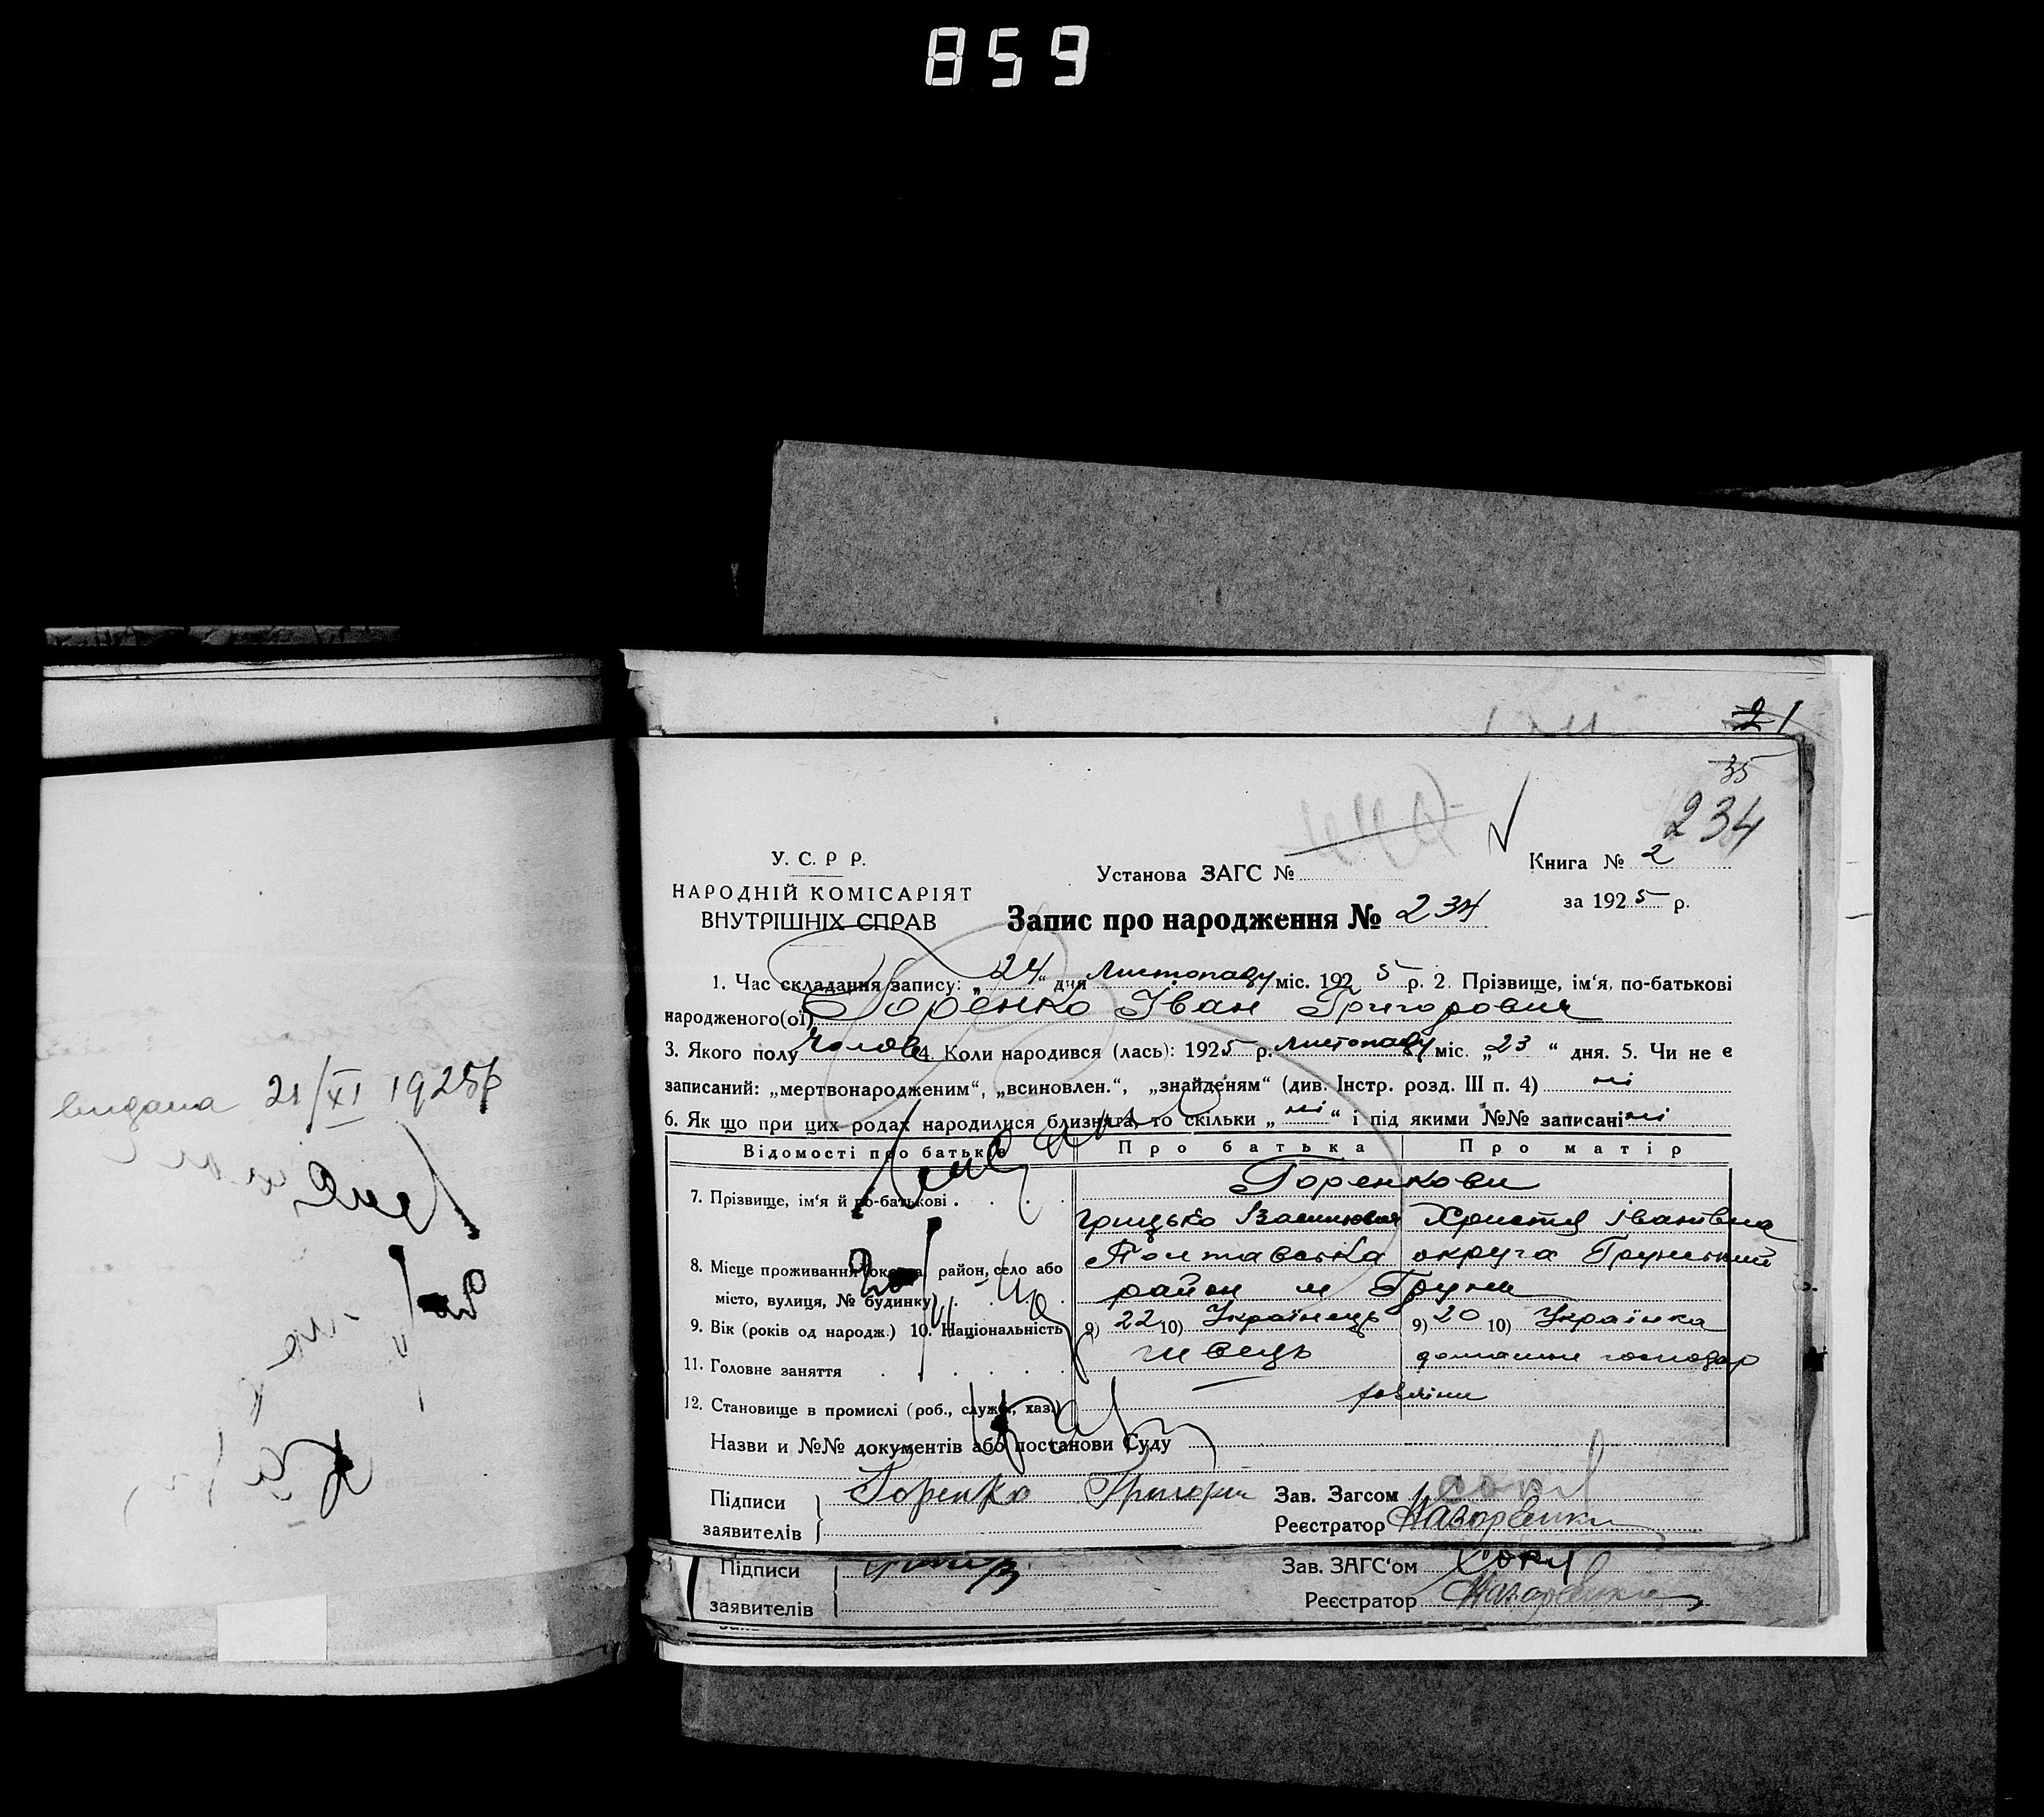 859
21
35
234
У. С. Р Р.
НАРОДНІЙ КОМІСАРІЯТ
ВНУТРІШНІХ СПРАВ
Установа ЗАГС №
Книга № 2
за 1925 р.
Запис про народження № 234
1. Час складання запису: „24“ дня Листопаду міс. 1925 р. 2. Прізвище, ім'я, по-батькові
народженого(ої) Горенко Іван Григорович
3. Якого полу чолов 4. Коли народився (лась): 1925 р. листопаду міс. „23“ дня. 5. Чи не є
записаний: „мертвонародженим“, „всиновлен.“, „знайденям“ (див. Інстр. розд. III п. 4) ні
6. Як що при цих родах народилися близнята, то скільки „ні“ і під якими №№ записані ні
Відомості про батьків Про батька Про матір
7. Прізвище, ім'я й по-батькові . . . . Горенкови
Грицько Васильович Христя Іванівна
8. Місце проживання (округа, район, село або Полтавська округа Грунський
місто, вулиця, № будинку) . . . . район м Грунь
9. Вік (років од народж.) 10. Національність 9) 22 10) Українець 9) 20 10) Українка
11. Головне заняття . . . . . швець домашне господар
12. Становище в промислі (роб., служб, хаз.)
Назви и №№ документів або постанови Суду
Підписи Горенко Григорий Зав. Загсом
заявителів Реєстратор Назаренко
Підписи Зав. ЗАГС'ом
заявителів Реєстратор Назаренко
видана 21/XI 1925р